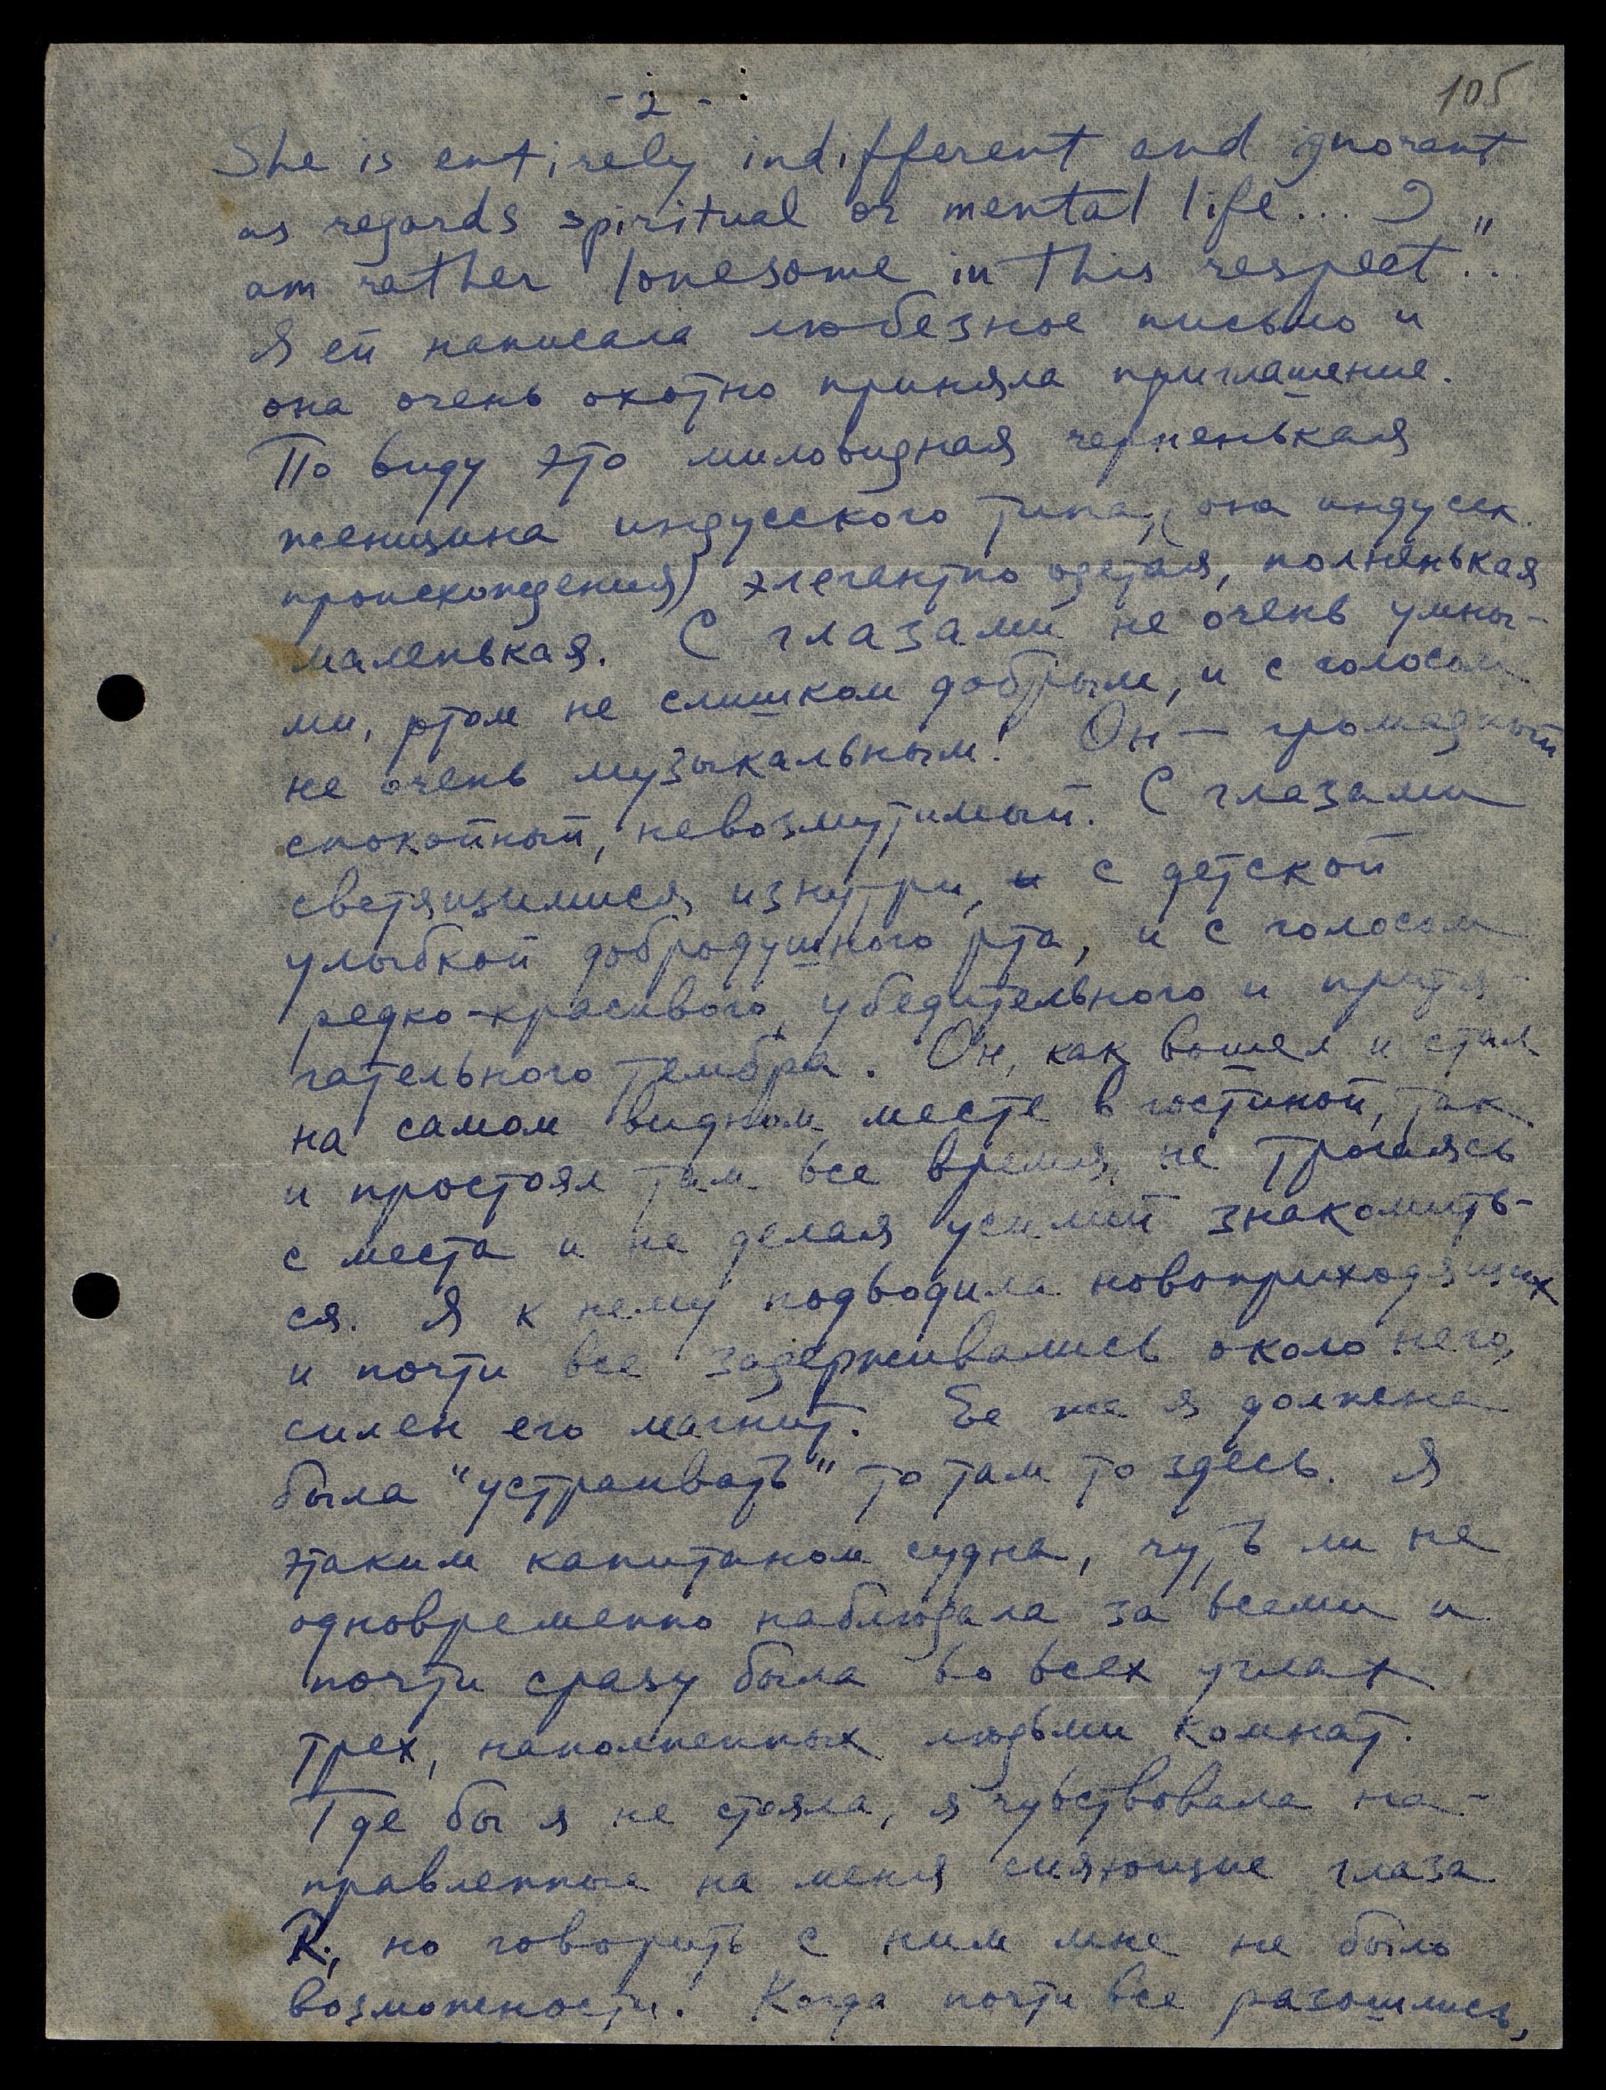 105
- 2 -
She is entirely indifferent and ignorant
as regards spiritual or mental life... I
am rather lonesome in this respect"..
Я ей написала любезное письмо и
она очень охотно приняла приглашение.
По виду это миловидная черненькая
женщина индусского типа, (она индусск.
происхождения) элегантно одетая, полненькая
маленькая. С глазами не очень умны-
ми, ртом не слишком добрым, и с голосом
не очень музыкальным! Он — громадный
спокойный, невозмутимый. С глазами
светящимися изнутри, и с детской
улыбкой добродушного рта, и с голосом
редко-красивого, убедительного и притя-
гательного тембра. Он, как вошел и стал
на самом видном месте в гостиной, так
и простоял там все время, не трогаясь
с места и не делая усилий знакомить-
ся. Я к нему подводила новоприходящих
и почти все задерживались около него,
силен его магнит. Ее же я должна
была "устраивать" то там то здесь. Я
этаким капитаном судна, чуть ли не
одновременно наблюдала за всеми и
почти сразу была во всех углах
трех, наполненных людьми комнат.
Где бы я не стояла, я чувствовала на-
правленные на меня сияющие глаза
R., но говорить с ним мне не было
возможности. Когда почти все разошлись,